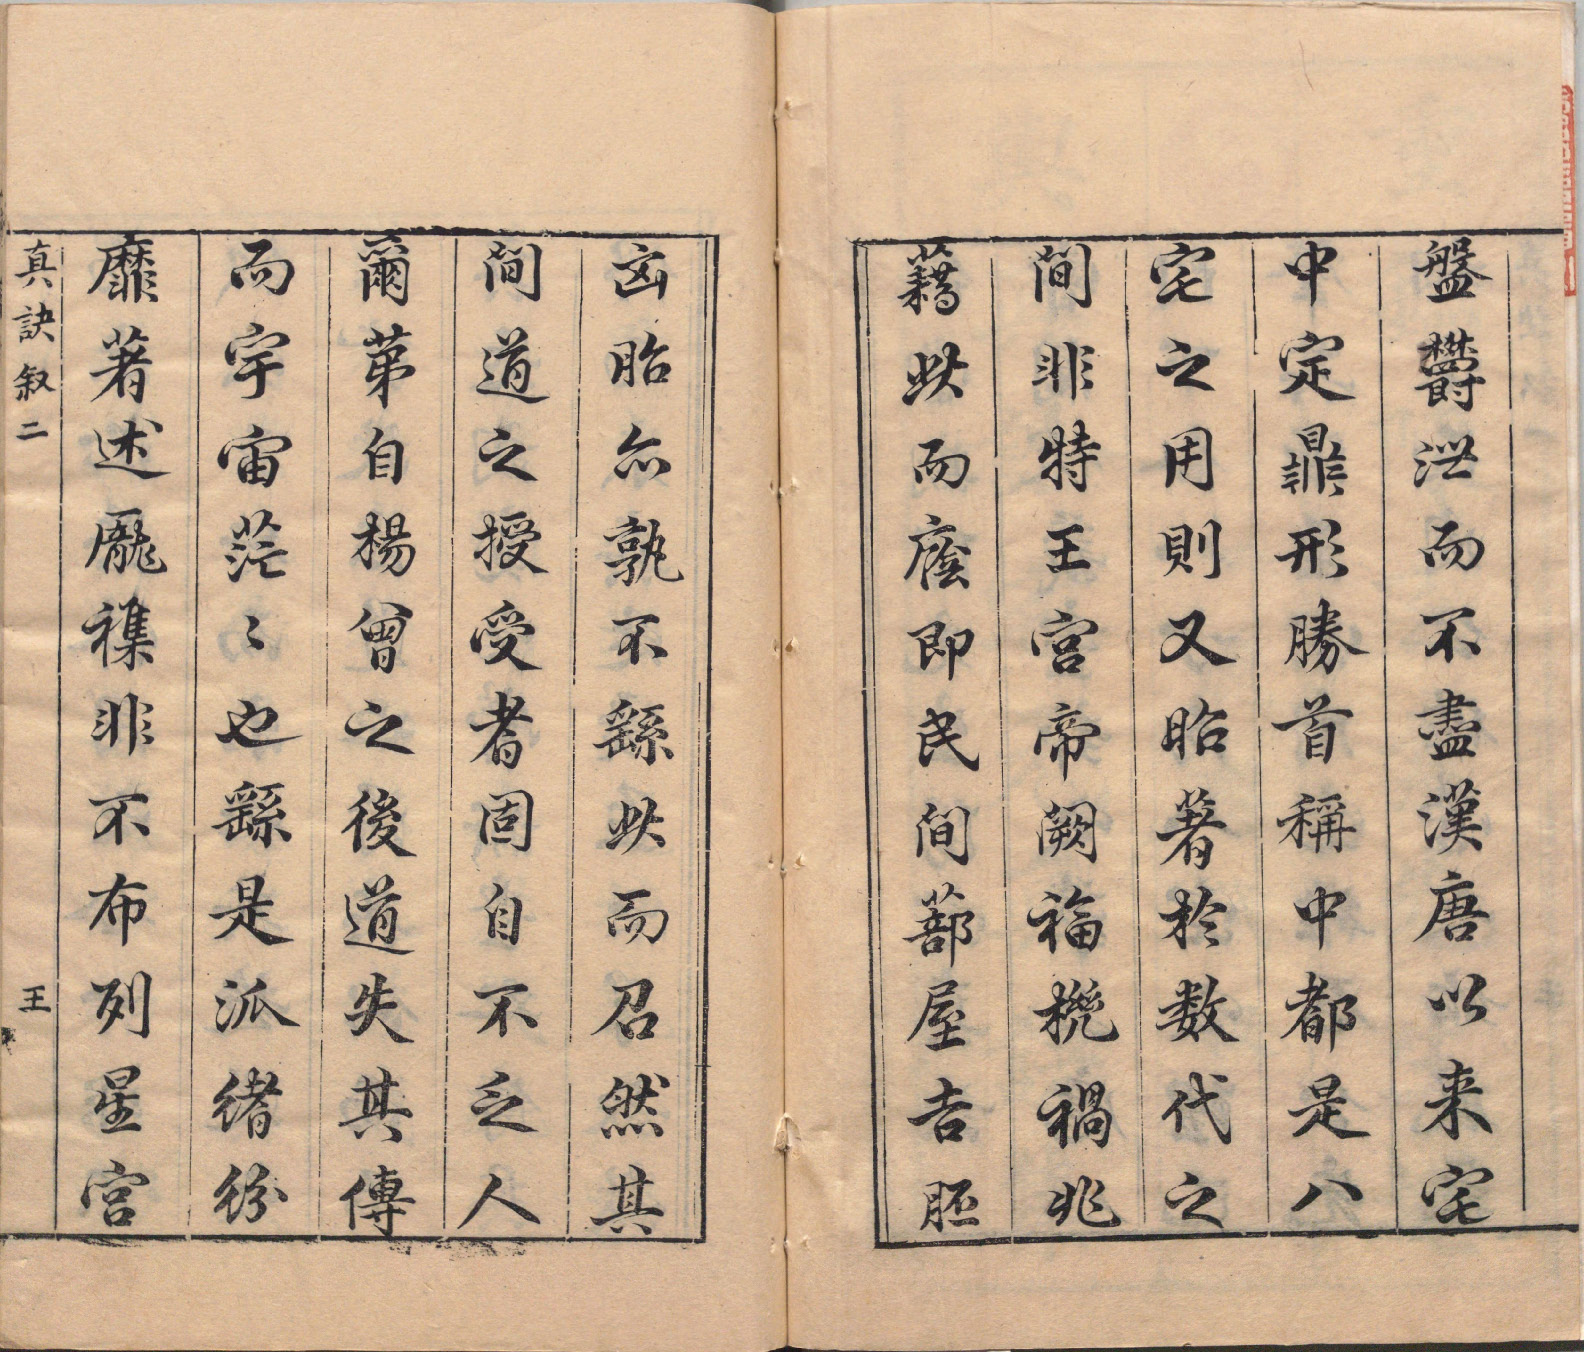 盤欝泄而不盡漢唐以来宅
中定鼎形勝首稱中都是八
宅之用則又昭著於数代之
間非特王宫帝闕福㮣禍兆
藉此而䕃即民間蔀屋吉胚
凶胎亦孰不繇此而召然其
間道之授受者固自不乏人
爾苐自楊曾之後道失其傳
而宇宙茫〻也繇是派緒紛
靡著述厖襍非不布列星宫
真訣叙二 王